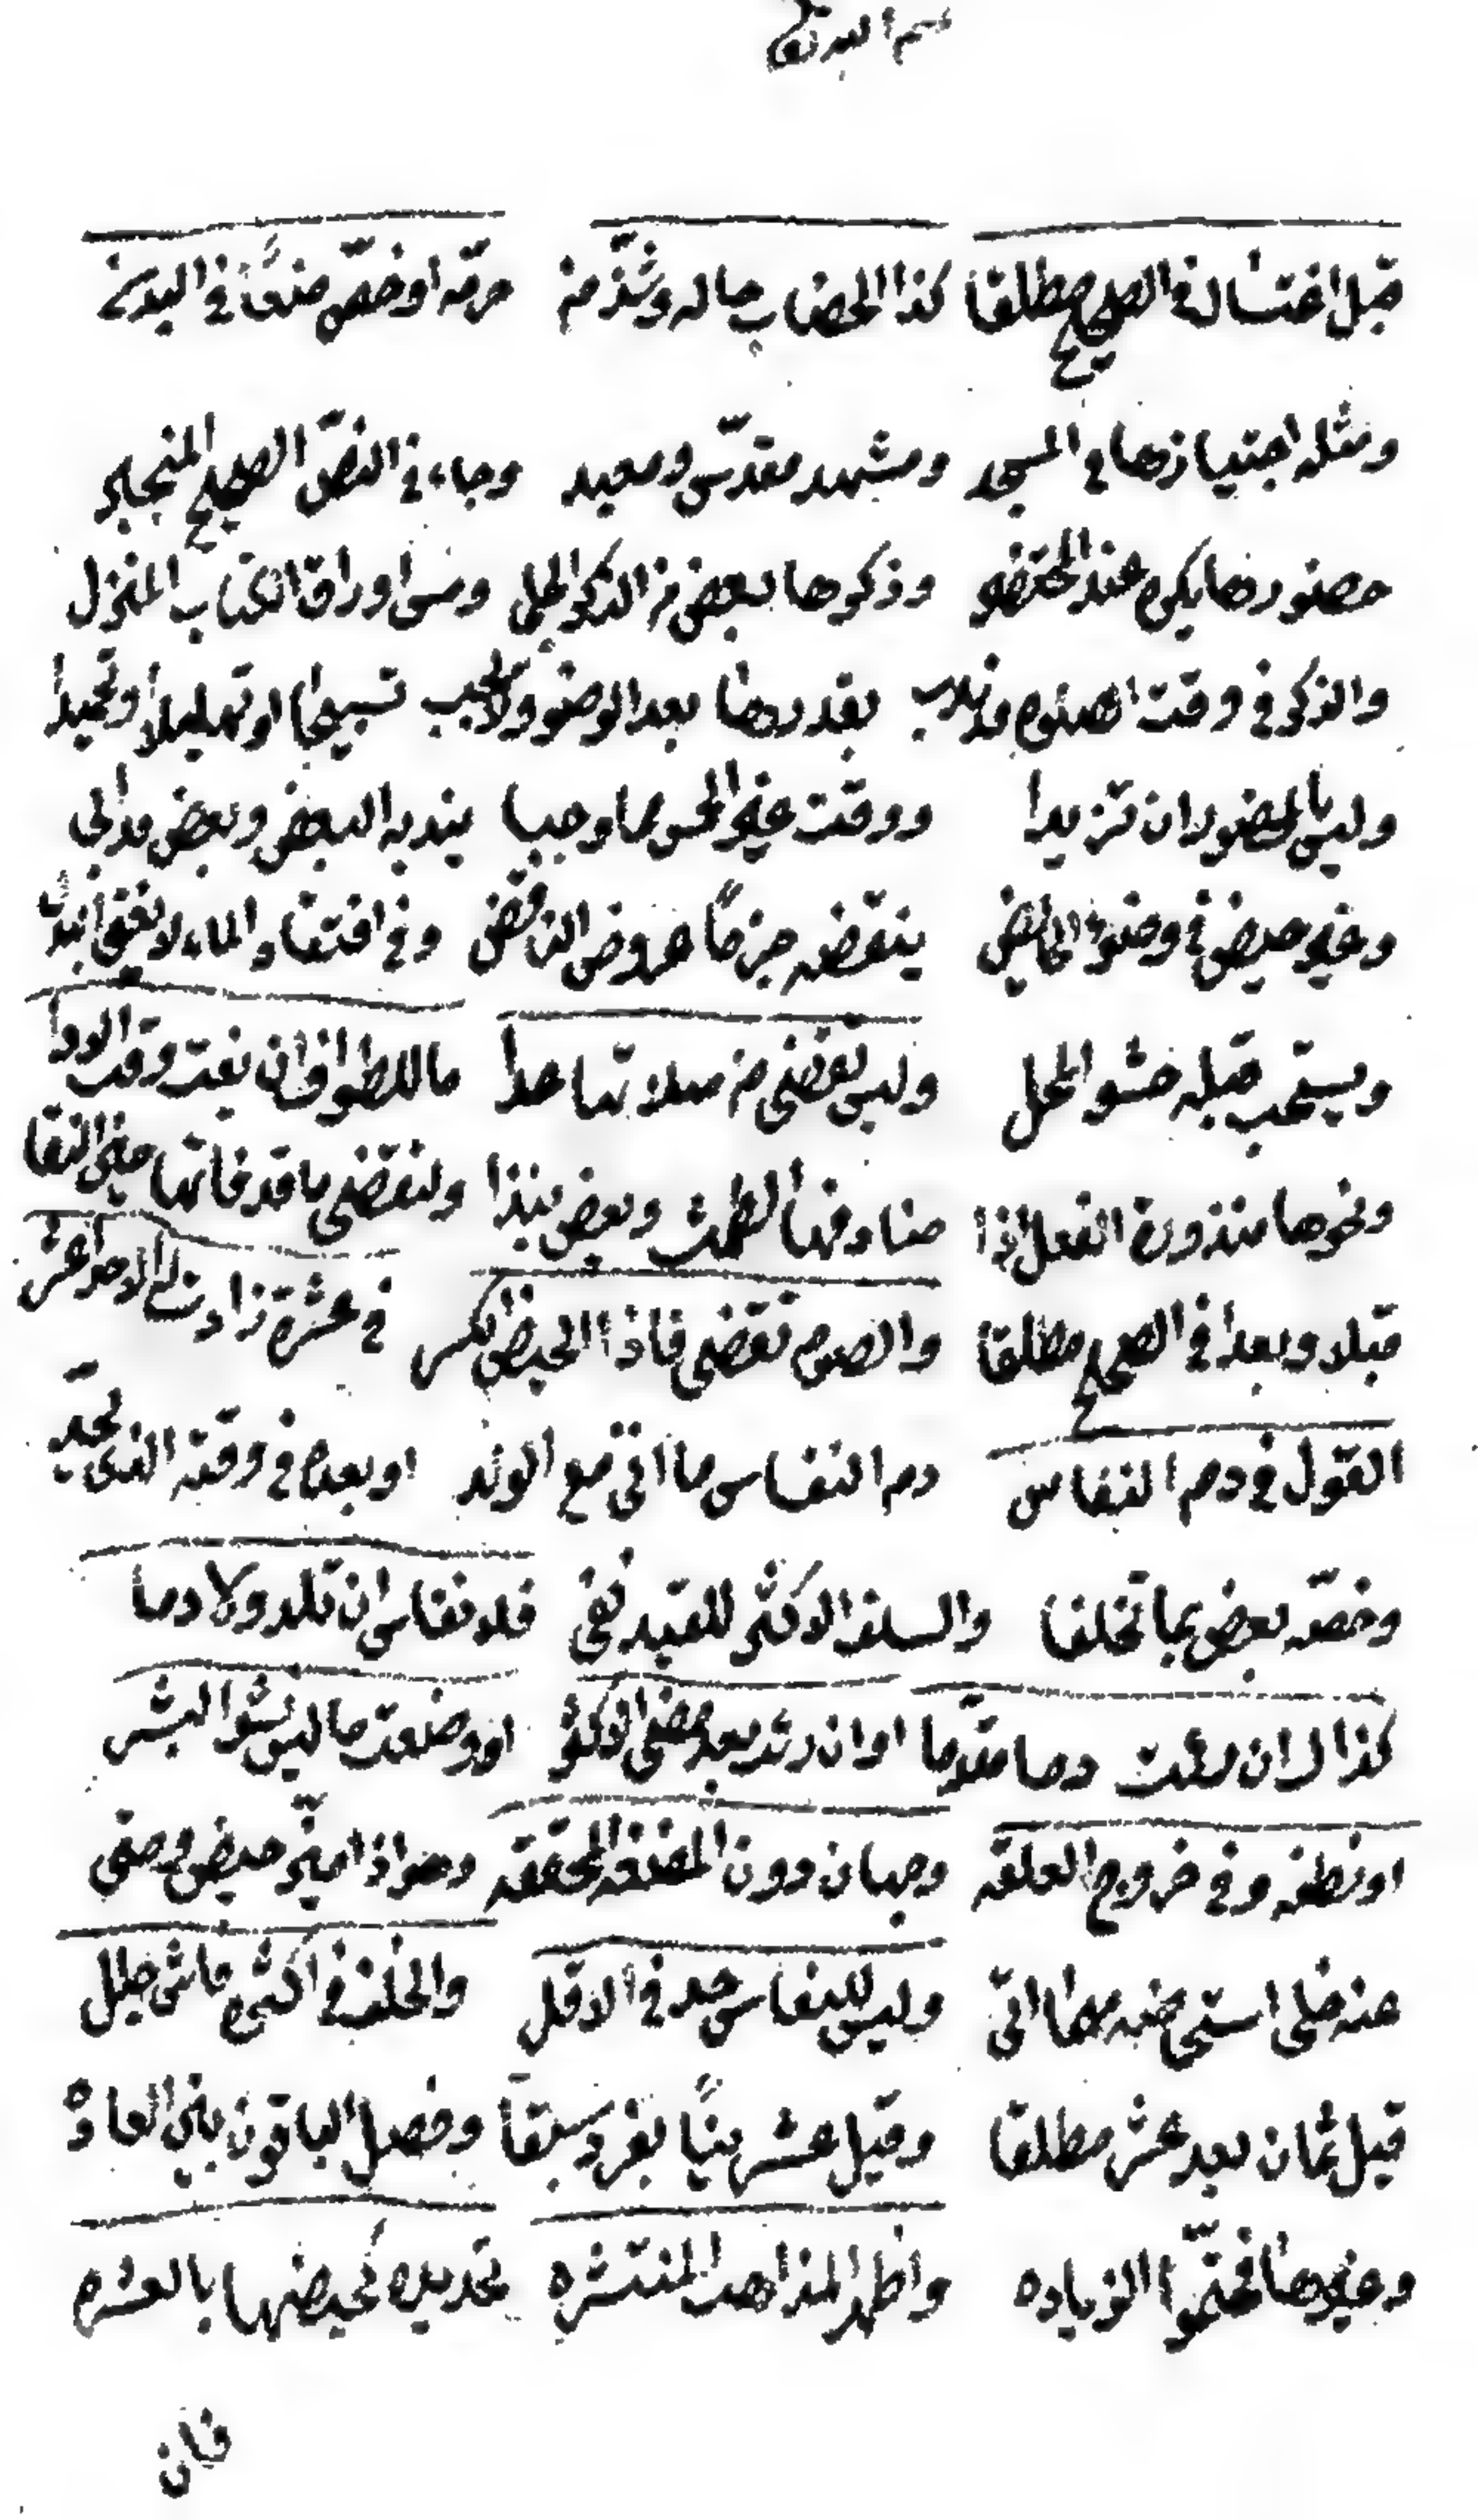 قبل اغتسال في الصحيح مطلقا كذا الخضاب حاله وشذ من حرمه او خص منعًا في اليدين
ومثله اجتيازها في المسجد ومشهد مقدّس ومعبد وجاء في النصّ الصحيح المنجلي
حضورها يكره عند المحتضر وذكرها لبعض من الذكر الجلي ومس اوراق الكتاب المنزل
والذكر في وقت الصلوة قد ندب بقدرها بعد الوضو ولا يجب تسبيحا او تهليلا وتحميدا
وليس بالمحضور ان تزيدا ووقت غير الخمس مما وجبا يندبه البعض وبعض قد ابى
وغير حيض في وضوء الحائض ينقضه جزمًا عروض الناقض وفي افتقاد الماء لا يغني البدل
ويستحب قبله حشو المحل وليس تقضي من صلاتها عدا ما للطواف ان بغت وقت الادا
ونحوها منذورة الفعل اذا صادفها الطمث وبعض نبذا ولتقضي ما قد فاتها حين النقا
قبلا وبعدا في الصحيح مطلقا والصوم تقضي فاذا الحيض انكسر في عشرة زادت الى الاحد عشر
القول في دم النفاس دم النفاس ما اتى مع الولد او بعده في وقته الذي يحدّ
وخصّه بعض بما تخلفا والسلف الاكثر للقيد نفى فلا نفاس ان تلد ولا دما
كذاك ان رأت دما مقدّما او ان رأت بعد مضي الاكثر او وضعت ما ليس نشو البشر
او نطفه وفي خروج العلقه وجهان دون المضغه المحققه وهو اذا ميّز حيض وصفي
عنه خلى استحاضه مهما اتى وليس للنفاس حد في الاقل والخلف في اكثره فاش جلل
قيل ثمان بعد عشر مطلقا وقيل عشر بينًا بفرد سبقا وفصل الباقون بين العادة
وغيرها فحتّموا الزياده واظهر المذاهب المنتشره تحديده كحيضها بالعشره
فان